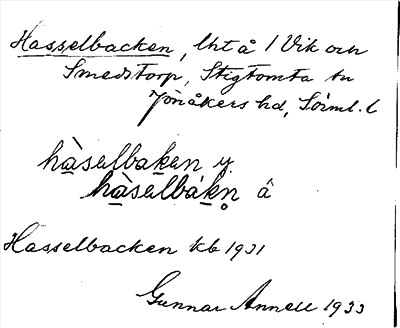 Hasselbacken, lht å 1 Vik och
Smedstorp, Stigtomta sn
Jönåkers hd, Sörml. l
hàselbaken y.
hàselbákn̥ ä
Hasselbacken kb 1931
Gunnar Annell 1933